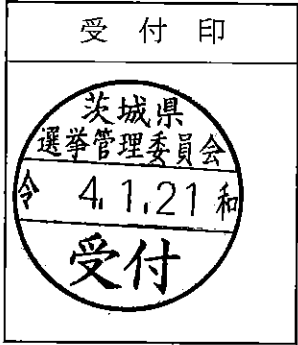 受付印
茨城県
選挙管理委員会
令 4.1.21 和
受付